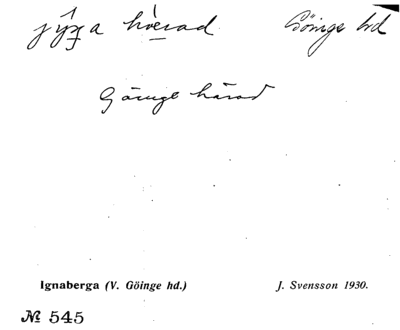 Göinge hd
Göinge härad
Ignaberga (V. Göinge hd.) J. Svensson 1930.
№ 545